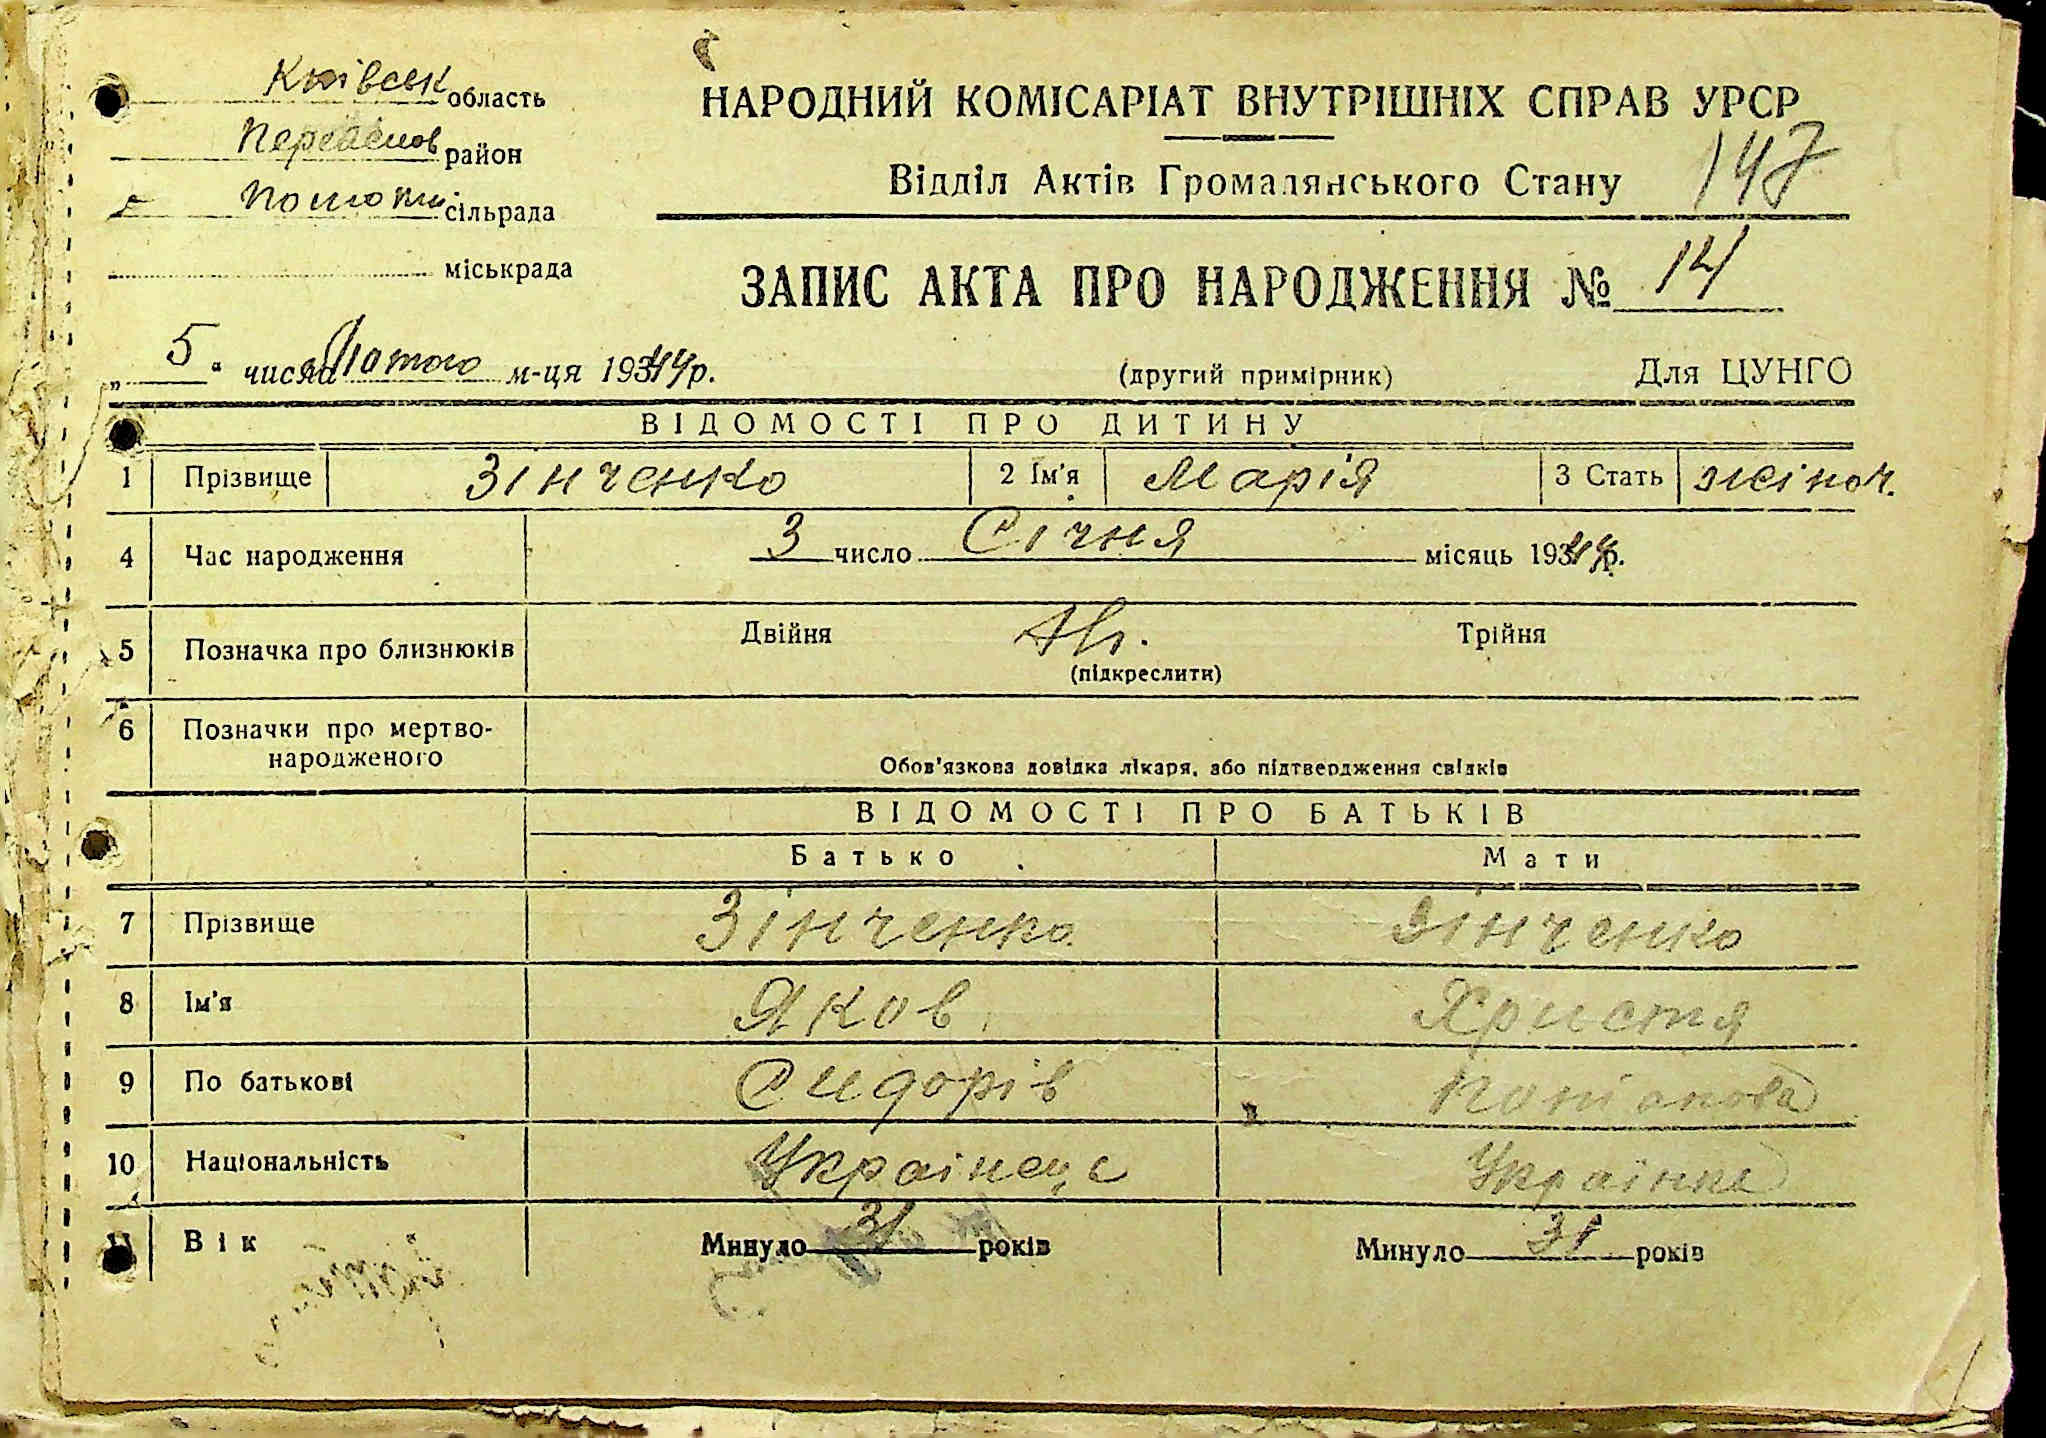 Київськ область
НАРОДНИЙ КОМІСАРІАТ ВНУТРІШНІХ СПРАВ УРСР
район
Відділ Актів Громадянського Стану 147
сільрада
міськрада
ЗАПИС АКТА ПРО НАРОДЖЕННЯ № 14
„5“ числа Лютого м-ця 1944 р.
(другий примірник)
Для ЦУНГО
ВІДОМОСТІ ПРО ДИТИНУ
1 Прізвище Зінченко 2 Ім'я Марія 3 Стать жіноч.
4 Час народження 3 число Січня місяць 1944 р.
5 Позначка про близнюків Двійня Ні. Трійня
(підкреслити)
6 Позначки про мертво-
народженого
Обов'язкова довідка лікаря, або підтвердження свідків
ВІДОМОСТІ ПРО БАТЬКІВ
Батько Мати
7 Прізвище Зінченко Зінченко
8 Ім'я Яков Христя
9 По батькові Сидорів
10 Національність Украінець Украінка
11 Вік Минуло 31 років Минуло 31 років